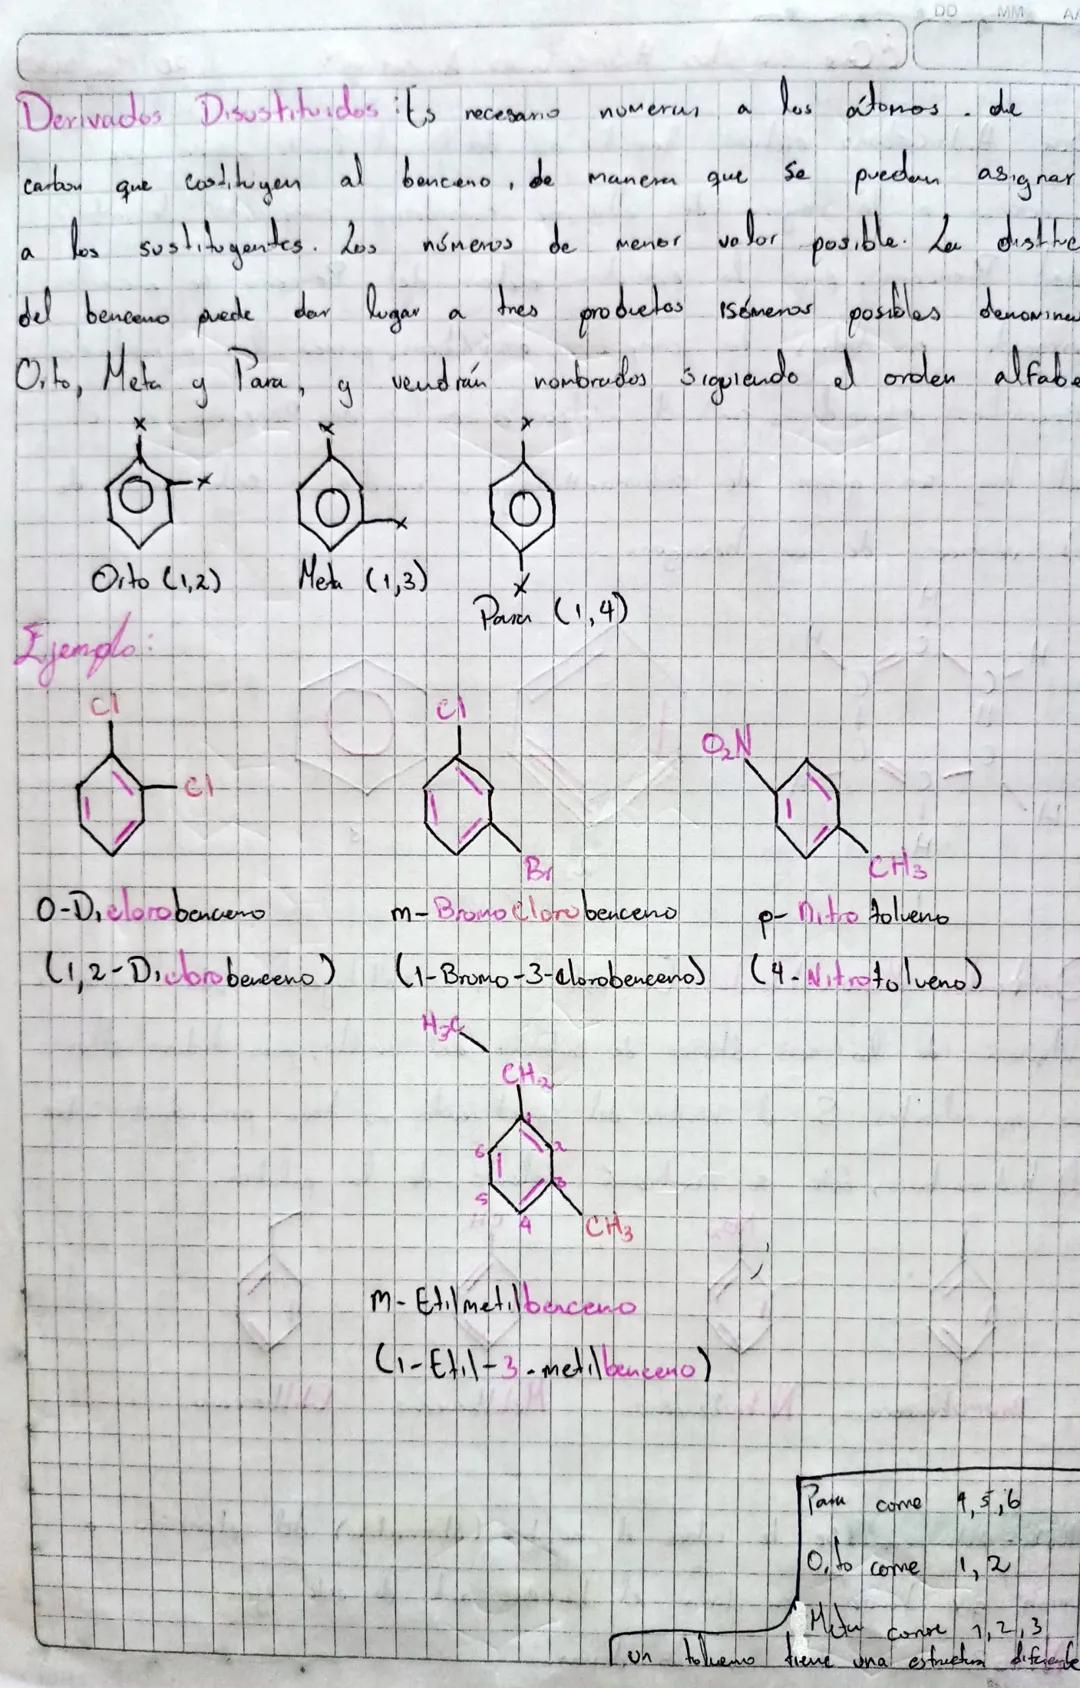 DD MM AA
Derivados Disustituidos: Es necesario numerar a los átomos. de
carbon que costituyen al benceno, de manera que se puedan asignar
a los sustituyentes. Los números de menor valor posible. La
del benceno puede dar lugar a tres productos isómeros posibles
Orto, Meta y Para, y vendrán nombrados siguiendo el orden alfabe
X X X
X X
Orto (1,2) Meta (1,3) X
Para (1,4)
Ejemplo:
Cl Cl O2N
Cl Br CH3
O-Diclorobenceno m-Bromoclorobenceno p-Nitrotolueno
(1,2-Diclorobenceno) (1-Bromo-3-clorobenceno) (4-Nitrotolueno)
H3C
CH2
1
6 2
5 3
4 CH3
m-Etilmetilbenceno
(1-Etil-3-metilbenceno)
Para come 4,5,6
Orto come 1,2
Meta come 1,2,3
un tolueno tiene una estructura diferente